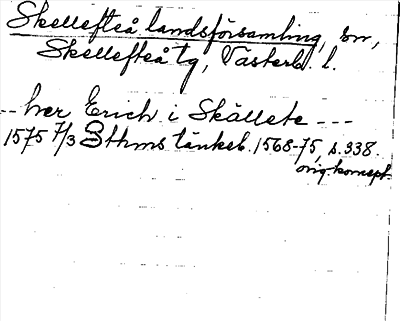 Skellefteå landsförsamling, sn,
Skellefteå tg, Västerb. l.
-- her Erich i Skällete ---
1575 7/3 Sthms tänkeb. 1568-75, s. 338.
orig. koncept.